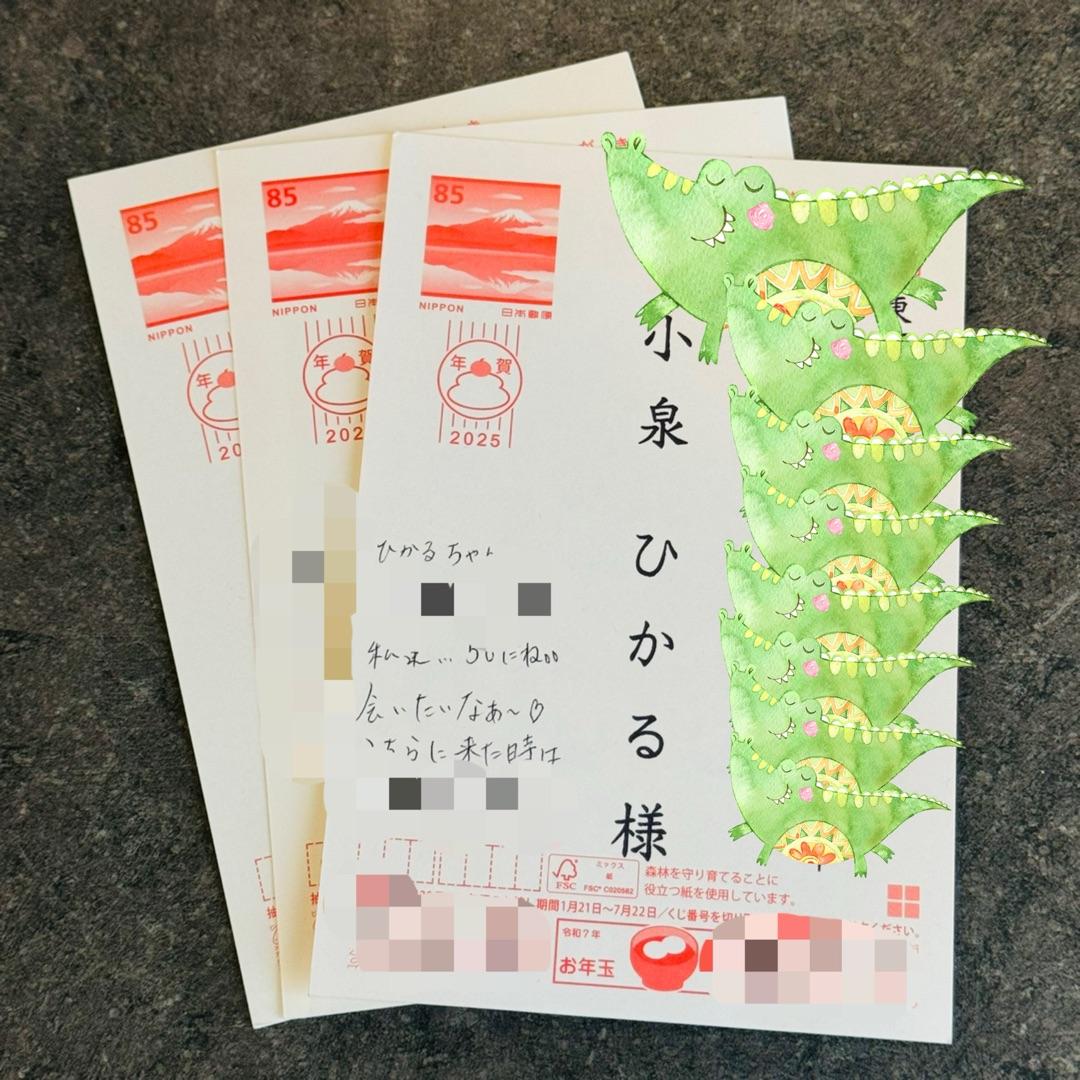 85
NIPPON
年
20
85
NIPPON
日本
年賀
202
85
NIPPON
日本郵便
年賀
2025
小泉 ひかる 様
ひかるちゃん
会いたいなぁ〜♡
こちらに来た時は
ミックス
紙
FSC
FSC® C020582
森林を守り育てることに
役立つ紙を使用しています。
期間1月21日〜7月22日/くじ番号を切り
ください。
令和7年
お年玉
抽
抽